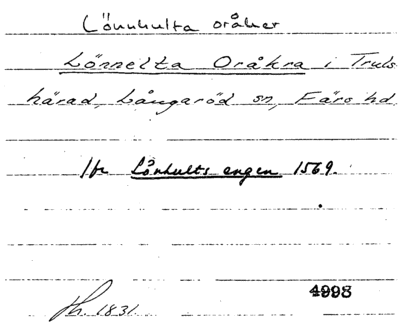 Lönnhulta oråker
Lönnelta Oråkra i Truls
härad, Långaröd sn, Färs hd
Jfr Lönhults engen 1569.
Jh. 1831
4998